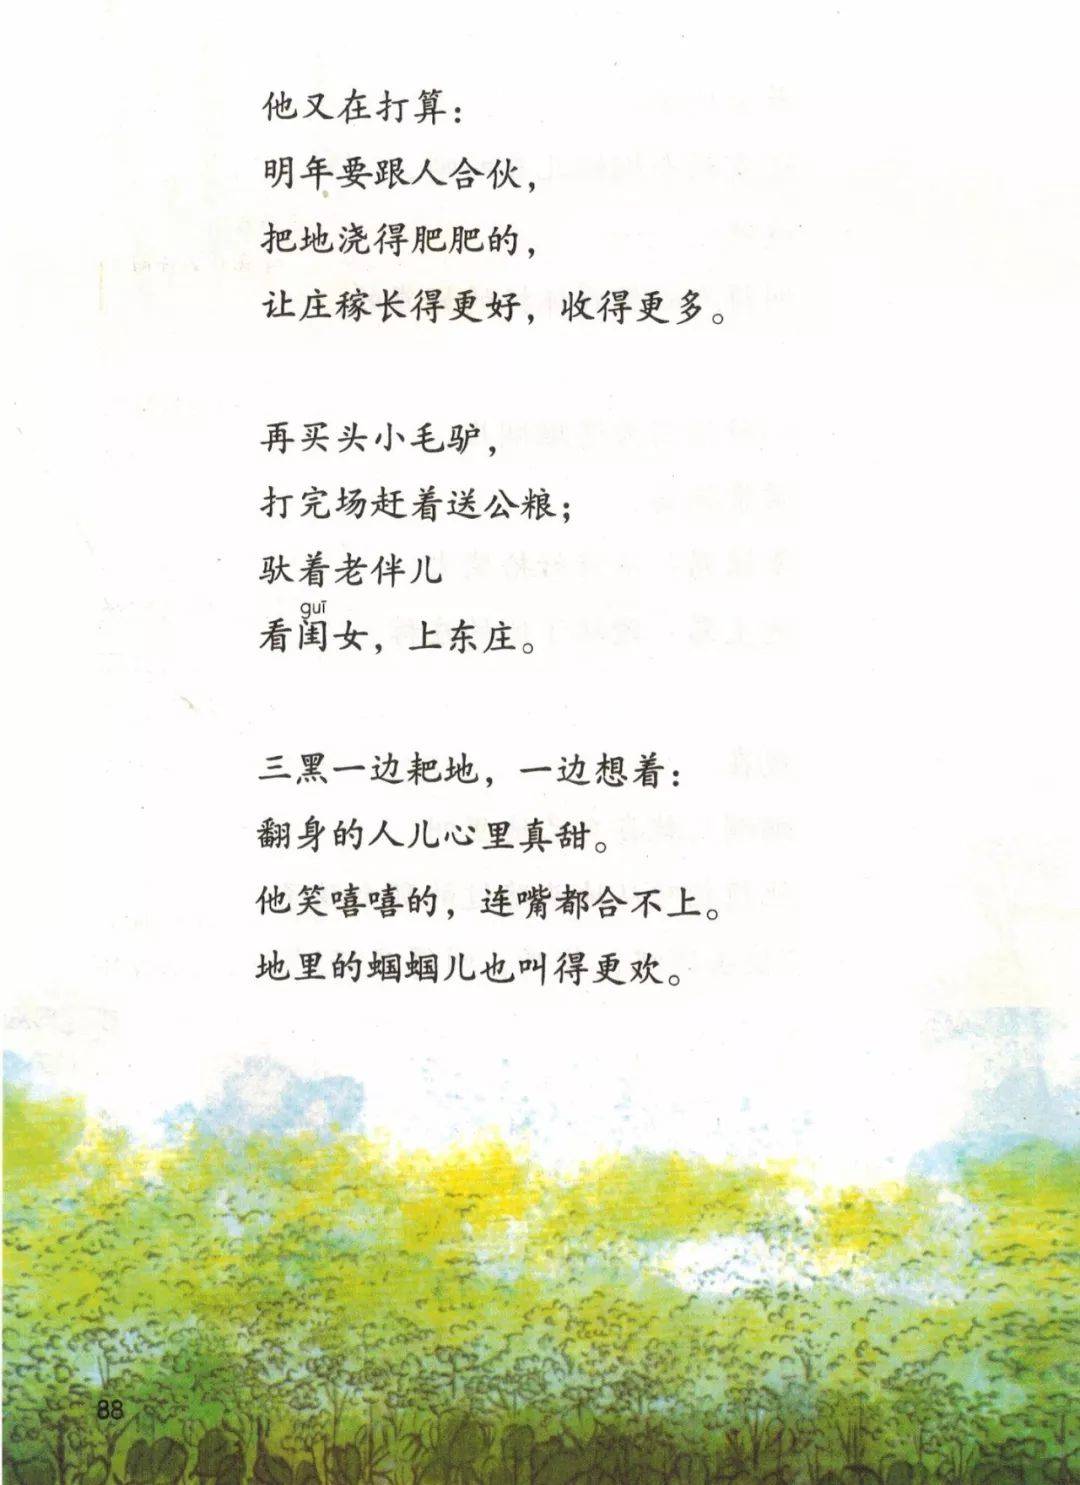 他又在打算：
明年要跟人合伙，
把地浇得肥肥的，
让庄稼长得更好，收得更多。
再买头小毛驴，
打完场赶着送公粮；
驮着老伴儿
guī
看闺女，上东庄。
三黑一边耙地，一边想着：
翻身的人儿心里真甜。
他笑嘻嘻的，连嘴都合不上。
地里的蝈蝈儿也叫得更欢。
88